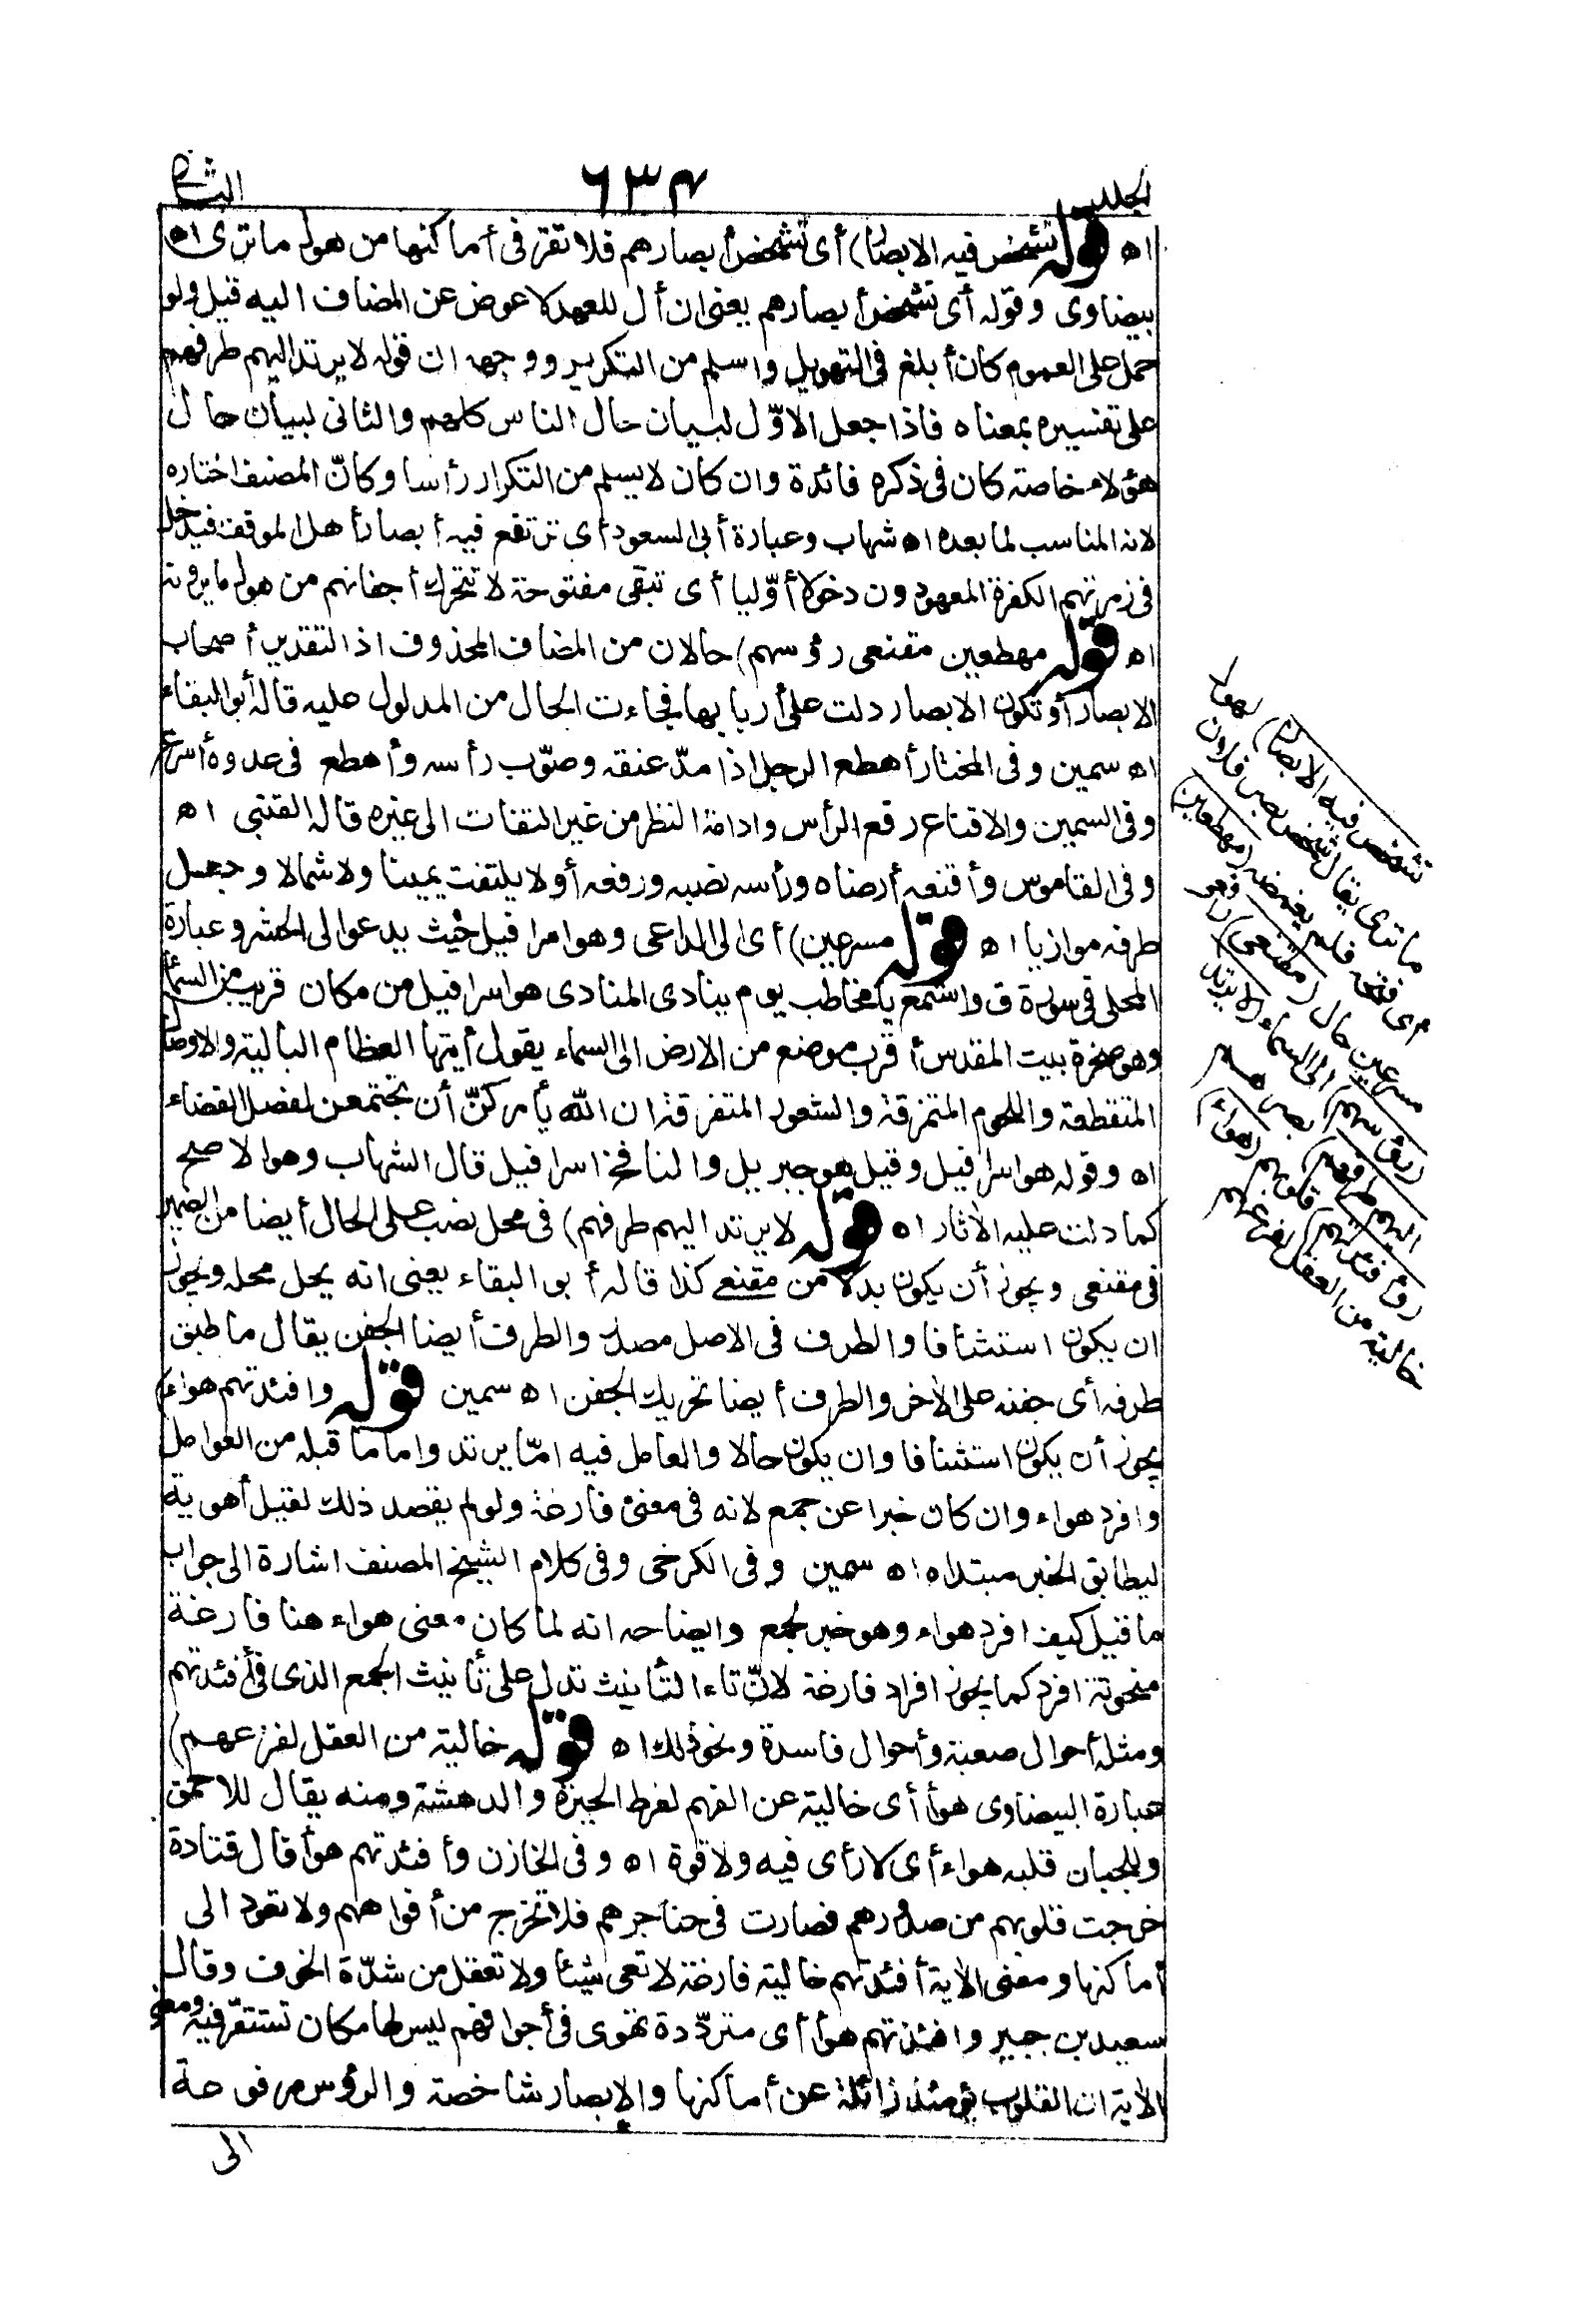 الجلد
٦٣٤
الثانى
اه قوله تشخص فيه الابصار) أى تشخص أبصارهم فلا تقر فى أماكنها من هول ما ترى اه
بيضاوى وقوله أى تشخص أبصارهم يعنى ان أل للعهد لا عوض عن المضاف اليه قيل ولو
حمل على العموم كان أبلغ فى التهويل واسلم من التكرير ووجهه ان قوله لا يرتد اليهم طرفهم
على تفسيره بمعناه فاذا جعل الاوّل لبيان حال الناس كلهم والثانى لبيان حال
هؤلاء خاصة كان فى ذكره فائدة وان كان لا يسلم من التكرار رأسا وكأنّ المصنف اختاره
لانه المناسب لما بعده اه شهاب وعبارة أبى السعود أى ترتفع فيه أبصار أهل الموقف فيدخل
فى زمرتهم الكفرة المعهودون دخولا أوّليا أى تبقى مفتوحة لا تتحرك أجفانهم من هول ما يرونه
اه قوله مهطعين مقنعى رؤسهم) حالان من المضاف المحذوف اذ التقدير أصحاب
الابصار أو تكون الابصار دلت على أربابها فجاءت الحال من المدلول عليه قاله أبو البقاء
اه سمين وفى المختار أهطع الرجل اذا مدّ عنقه وصوّب رأسه وأهطع فى عدوه أسرع
وفى السمين والاقناع رفع الرأس وادامة النظر من غير التفات الى غيره قاله القتبى اه
وفى القاموس وأقنعه أرضاه ورأسه نصبه ورفعه أو لا يلتفت يمينا ولا شمالا وجعل
طرفه موازيا اه قوله مسرعين) أى الى الداعى وهو اسرافيل حيث يدعو الى الحشر وعبارة
المحلى فى سورة ق واستمع يا مخاطب يوم ينادى المنادى هو اسرافيل من مكان قريب من السماء
وهو صخرة بيت المقدس أقرب موضع من الارض الى السماء يقول أيتها العظام البالية والاوصال
المتقطعة واللحوم المتمزقة والشعور المتفرقة ان الله يأمركنّ أن تجتمعن لفصل القضاء
اه وقوله هو اسرافيل وقيل هو جبريل والنافخ اسرافيل قال الشهاب وهو الاصح
كما دلت عليه الآثار اه قوله لا يرتد اليهم طرفهم) فى محل نصب على الحال أيضا من الضمير
فى مقنعى ويجوز أن يكون بدلا من مقنعى كذا قاله أبو البقاء يعنى انه يحل محله ويجوز
ان يكون استئنافا والطرف فى الاصل مصدر والطرف أيضا الجفن يقال ما طبق
طرفه أى جفنه على الآخر والطرف أيضا تحريك الجفن اه سمين قوله وافئدتهم هواء)
يجوز أن يكون استئنافا وان يكون حالا والعامل فيه امّا يرتد واما ما قبله من العوامل
وافرد هواء وان كان خبرا عن جمع لانه فى معنى فارغة ولو لم يقصد ذلك لقيل أهوية
ليطابق الخبر مبتداه اه سمين وفى الكرخى وفى كلام الشيخ المصنف اشارة الى جواب
ما قيل كيف افرد هواء وهو خبر لجمع وايضاحه انه لما كان معنى هواء هنا فارغة
منحوتة افرد كما يجوز افراد فارغة لانّ تاء التأنيث تدل على تأنيث الجمع الذى فى أفئدتهم
ومثله أحوال صعبة وأحوال فاسدة ونحو ذلك اه قوله خالية من العقل لفزعهم)
عبارة البيضاوى هوأ أى خالية عن الفهم لفرط الحيرة والدهشة ومنه يقال للاحمق
وللجبان قلبه هواء أى لا رأى فيه ولا قوة اه وفى الخازن وأفئدتهم هوأ قال قتادة
خرجت قلوبهم من صدورهم فصارت فى حناجرهم فلا تخرج من أفواههم ولا تعود الى
أماكنها ومعنى الآية أفئدتهم خالية فارغة لا تعى شيئا ولا تعقل من شدّة الخوف وقال
سعيد بن جبير وافئدتهم هوأ أى متردّدة تهوى فى أجوافهم ليس لها مكان تستقرّ فيه ومعنى
الآية ان القلوب يومئذ زائلة عن أماكنها والابصار شاخصة والرؤس مرفوعة
الى
تشخص فيه الابصار) لهول
ما ترى يقال شخص بصر فلان
أى فتحه فلم يغمضه (مهطعين)
مسرعين حال (مقنعى) رافعى
(رؤسهم) الى السماء (لا يرتد
اليهم طرفهم) بصرهم
(وأفئدتهم) قلوبهم (هواء)
خالية من العقل لفزعهم